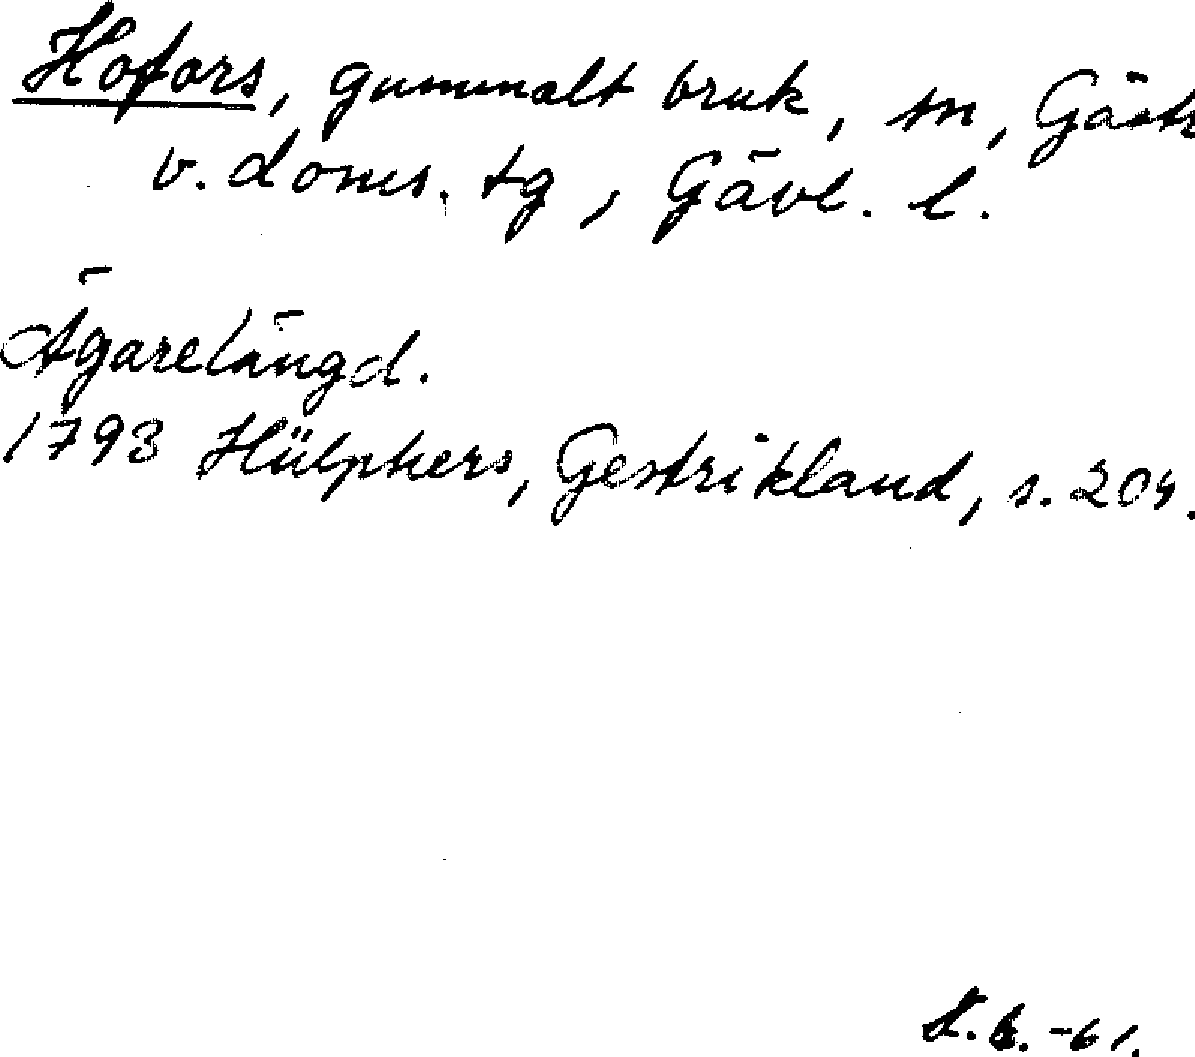 Hofors, gammalt bruk, sn, Gästr
v. doms. tg, Gävl. l.
Ägarelängd.
1793 Hülphers, Gestrikland, s. 204.
-61.